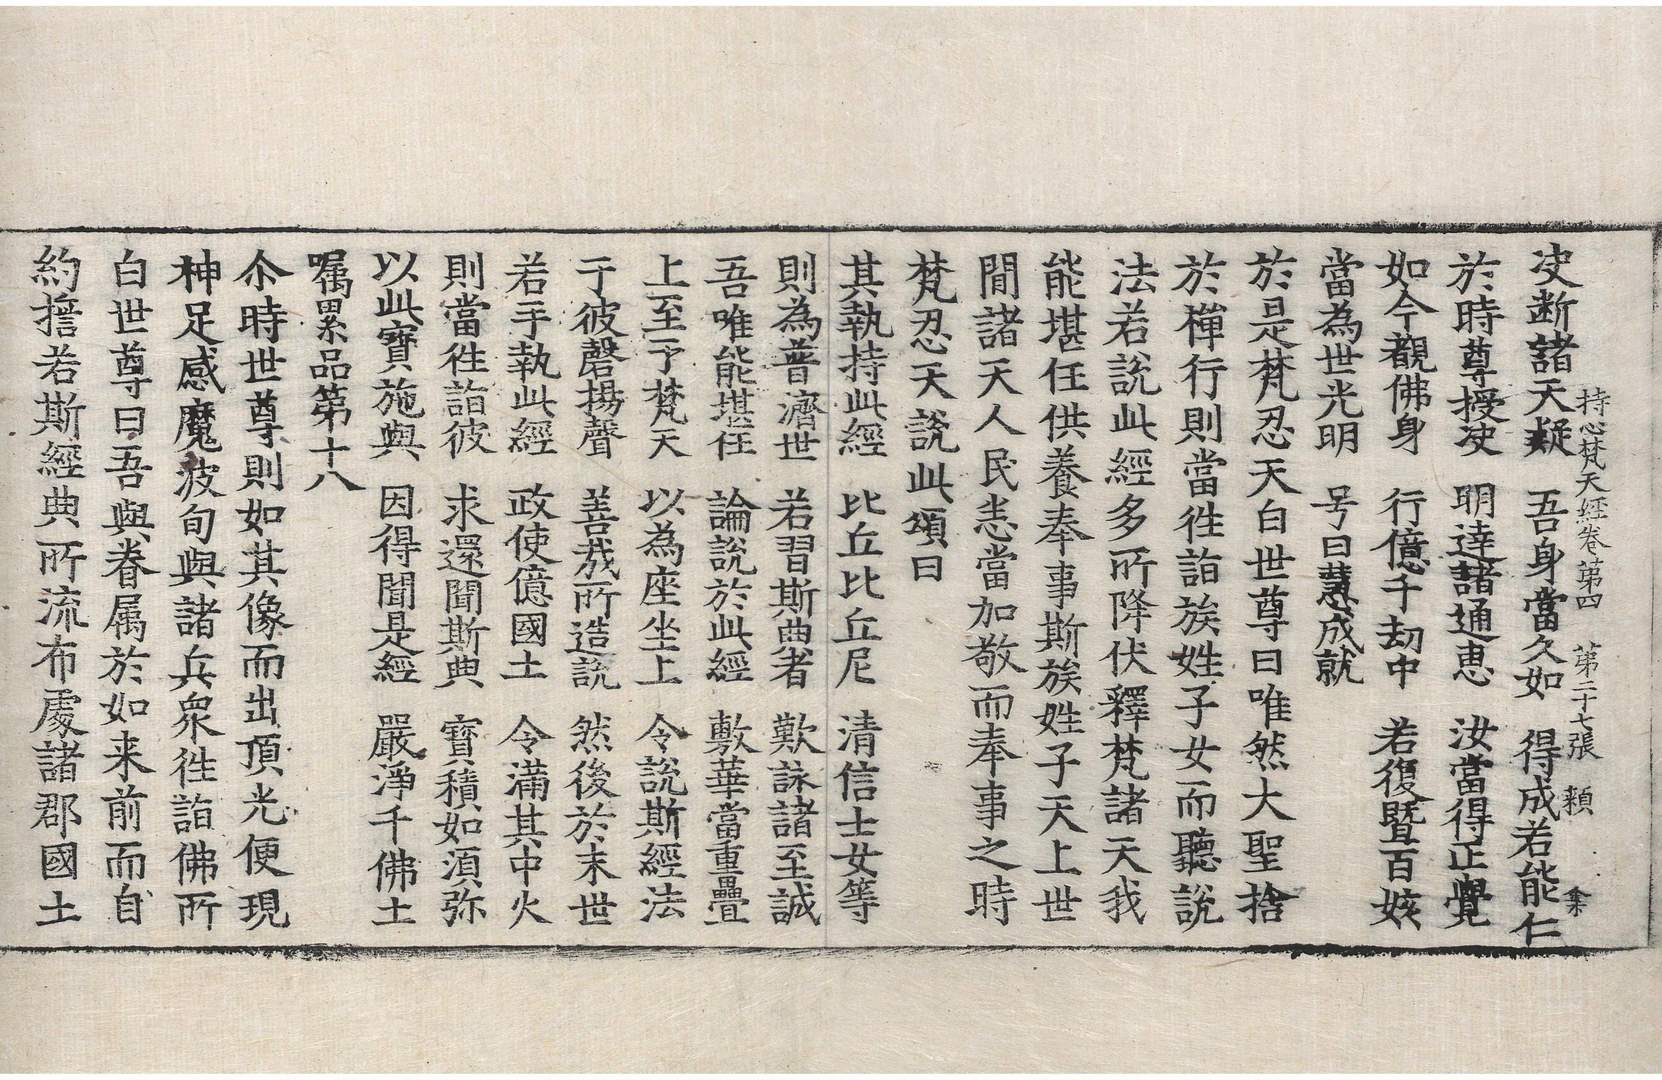 持心梵天經卷第四　第二十七張　賴
決断諸天疑　吾身當久如　得成若能仁
於時尊授决　明達諸通恵　汝當得正覺
如今覩佛身　行億千劫中　若復暨百姟
當為世光明　号曰慧成就
於是梵忍天白世尊曰唯然大聖捨
於禅行則當徃詣族姓子女而聽說
法若說此經多所降伏釋梵諸天我
能堪任供養奉事斯族姓子天上世
間諸天人民恚當加敬而奉事之時
梵忍天說此頌曰
其執持此經　比丘比丘尼　清信士女等
則為普濟世　若習斯典者　歎詠諸至誠
吾唯能堪任　論說於此經　敷華當重疊
上至于梵天　以為座坐上　令說斯經法
于彼磬揚聲　善哉所造說　然後於末世
若手執此經　政使億國土　令滿其中火
則當徃詣彼　求還聞斯典　寶積如湏弥
以此寶施與　因得聞是經　嚴淨千佛土
嘱累品第十八
尒時世尊則如其像而出頂光便現
神足感魔波旬與諸兵衆徃詣佛所
白世尊曰吾與眷属於如来前而自
約擔若斯經典所流布處諸郡國土